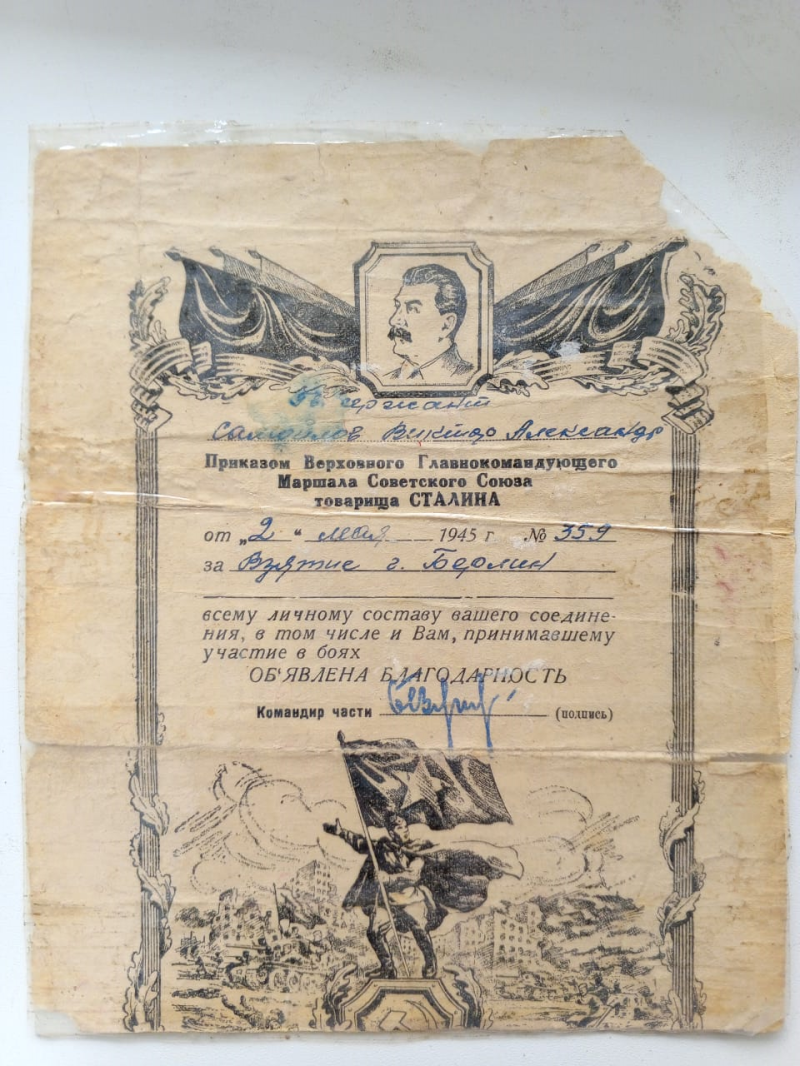 сержант
Самойлов Виктор Александр
Приказом Верховного Главнокомандующего
Маршала Советского Союза
товарища СТАЛИНА
от „2" мая 1945 г. № 359
за Взятие г. Берлин
всему личному составу вашего соедине-
ния, в том числе и Вам, принимавшему
участие в боях
ОБ'ЯВЛЕНА БЛАГОДАРНОСТЬ
Командир части (подпись)